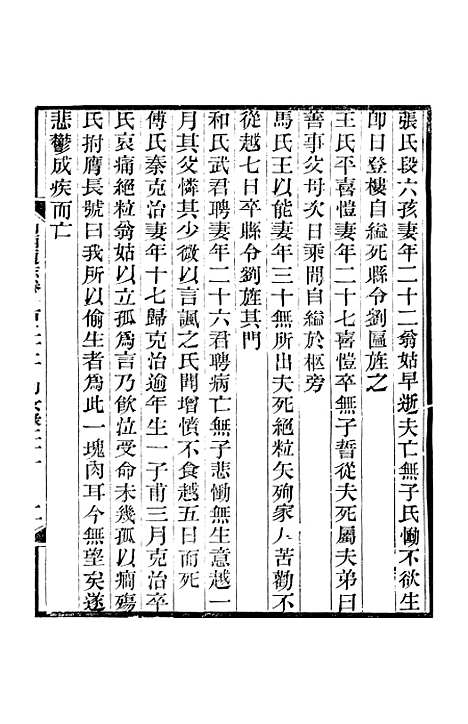 張氏段六孩妻年二十二翁姑早逝夫亡無子氏慟不欲生
卽日登樓自縊死縣令劉匾旌之
王氏平喜愷妻年二十七喜愷卒無子誓從夫死屬夫弟曰
善事父母次日乘間自縊於柩旁
馬氏王以能妻年三十無所出夫死絕粒矢殉家人苦勸不
從越七日卒縣令劉旌其門
和氏武君聘妻年二十六君聘病亡無子悲慟無生意越一
月其父憐其少微以言諷之氏聞增憤不食越五日而死
傅氏秦克治妻年十七歸克治逾年生一子甫三月克治卒
氏哀痛絕粒翁姑以立孤爲言乃飲泣受命未幾孤以痘殤
氏拊膺長號曰我所以偷生者爲此一塊肉耳今無望矣遂
悲鬱成疾而亡